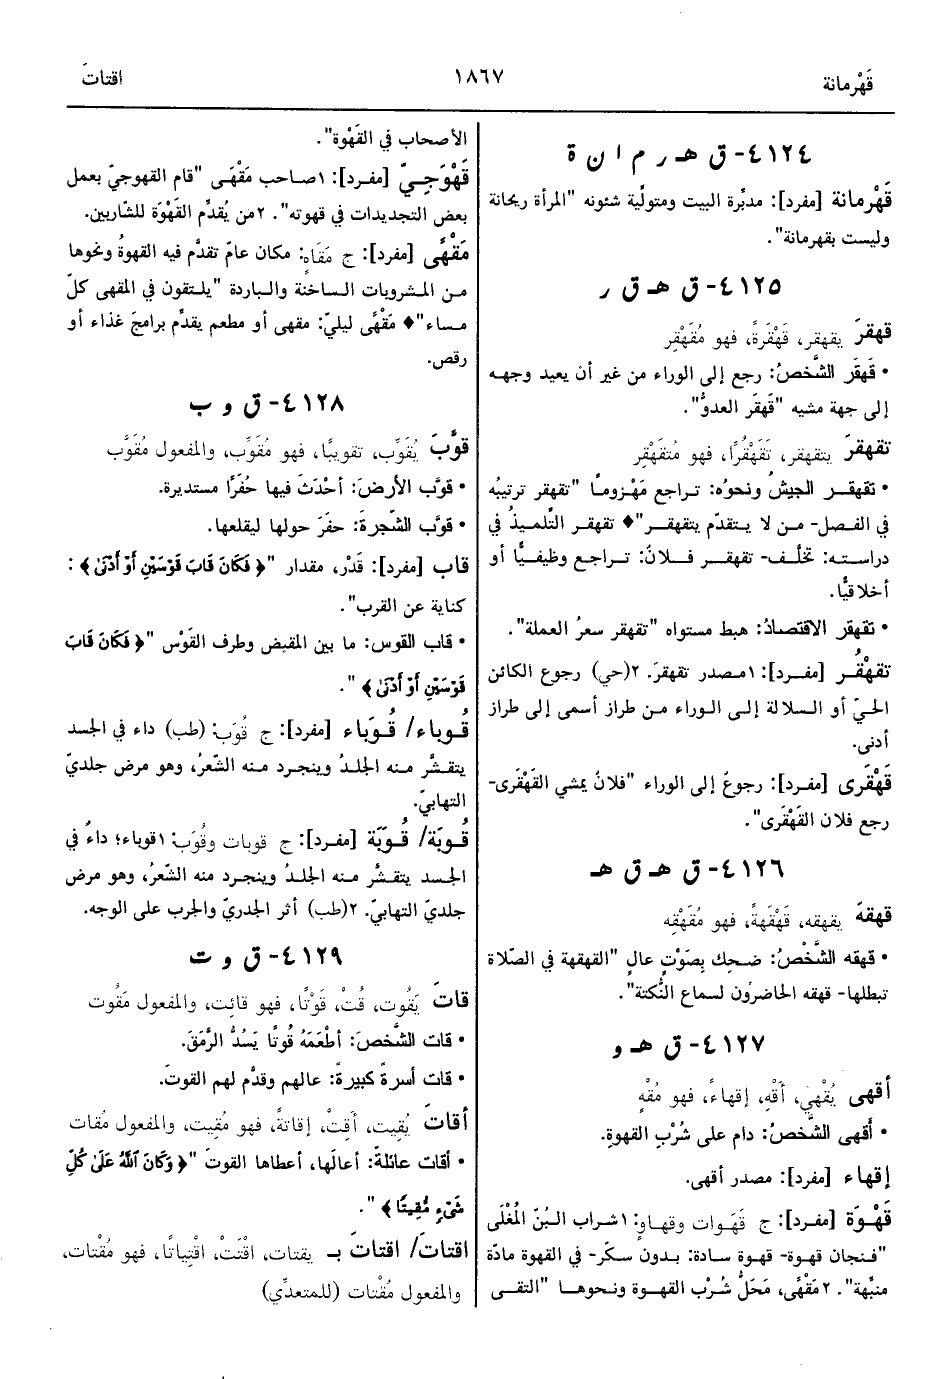 قَهْرمانة
١٨٦٧
اقتاتَ
٤١٢٤- ق هـ ر م ا ن ة
قَهْرمانة [مفرد]: مدبِّرة البيت ومتولِّية شئونه "المرأة ريحانة
وليست بقهرمانة".
٤١٢٥- ق هـ ق ر
قهقرَ يقهقر، قَهْقَرةً، فهو مُقَهْقِر
• قَهقَر الشَّخصُ: رجع إلى الوراء من غير أن يعيد وجهه
إلى جهة مشيه "قَهقَر العدوُّ".
تقهقرَ يتقهقر، تَقَهْقُرًا، فهو مُتقَهْقِر
• تقهقـر الجيشُ ونحوُه: تراجع مَهْزومًا "تقهقر ترتيبُه
في الفصل- من لا يتقدّم يتقهقر"♦ تقهقر التَّلميذُ في
دراسته: تخلَّف- تقهقر فلانٌ: تراجع وظيفيًّا أو
أخلاقيًّا.
• تقهقر الاقتصادُ: هبط مستواه "تقهقر سعرُ العملة".
تقهْقُر [مفرد]: ١مصدر تقهقرَ. ٢(حي) رجوع الكائن
الحيّ أو السلالة إلى الوراء من طراز أسمى إلى طراز
أدنى.
قَهْقَرى [مفرد]: رجوعٌ إلى الوراء "فلانٌ يمشي القَهْقَرى-
رجع فلان القَهْقَرى".
٤١٢٦- ق هـ ق هـ
قهقهَ يقهقه، قَهْقَهةً، فهو مُقَهْقِه
• قهقه الشَّخْصُ: ضحِك بِصَوْتٍ عالٍ "القهقهة في الصَّلاة
تبطلها- قهقه الحاضرُون لسماع النُّكتة".
٤١٢٧- ق هـ و
أقهى يُقْهي، أَقْهِ، إقهاءً، فهو مُقْهٍ
• أَقهى الشَّخصُ: دام على شُرْبِ القهوةِ.
إقهاء [مفرد]: مصدر أقهى.
قَهْوَة [مفرد]: ج قَهَوات وقِهاوٍ: ١شراب البُنّ المُغْلَى
"فنجان قهوة- قهوة سادة: بدون سكّر- في القهوة مادّة
منبِّهة". ٢مَقْهًى، مَحَلُّ شُرْب القهوة ونحوها "التقى
الأصحاب في القَهْوة".
قَهْوَجِيّ [مفرد]: ١صاحب مَقْهَى "قام القهوجيّ بعمل
بعض التجديدات في قهوته". ٢من يُقدِّم القَهْوة للشاربين.
مَقْهًى [مفرد]: ج مَقَاهٍ: مكان عامّ تقدَّم فيه القهوةُ ونحوها
من المشروبات الساخنة والباردة "يلتقون في المقهى كلّ
مساء"♦ مَقْهًى ليليّ: مقهى أو مطعم يقدِّم برامجَ غذاء أو
رقص.
٤١٢٨- ق و ب
قوَّبَ يُقَوِّب، تقويبًا، فهو مُقَوِّب، والمفعول مُقَوَّب
• قوَّب الأرضَ: أحْدَثَ فيها حُفَرًا مستديرة.
• قوَّب الشّجرةَ: حفَرَ حولها ليقلعها.
قاب [مفرد]: قَدْر، مقدار "﴿ فَكَانَ قَابَ قَوْسَيْنِ أَوْ أَدْنَىٰ ﴾ :
كناية عن القرب".
• قاب القوس: ما بين المقبض وطرف القَوْس "﴿ فَكَانَ قَابَ
قَوْسَيْنِ أَوْ أَدْنَىٰ ﴾ ".
قُوباء/ قُوَباء [مفرد]: ج قُوَب: (طب) داء في الجسد
يتقشَّر منه الجلدُ وينجرد منه الشّعرُ، وهو مرض جلديّ
التهابيّ.
قُوبَة/ قُوَبَة [مفرد]: ج قوبات وقُوَب: ١قوباء؛ داءٌ في
الجسد يتقشَّر منه الجلدُ وينجرد منه الشّعرُ، وهو مرض
جلديّ التهابيّ. ٢(طب) أثر الجدريّ والجرب على الوجه.
٤١٢٩- ق و ت
قاتَ يَقُوت، قُتْ، قَوْتًا، فهو قائت، والمفعول مَقُوت
• قات الشَّخصَ: أطْعَمَهُ قُوتًا يَسُدُّ الرَّمَقَ.
• قات أسرةً كبيرةً: عالهم وقدَّم لهم القوتَ.
أقاتَ يُقيت، أَقِتْ، إقاتةً، فهو مُقيت، والمفعول مُقات
• أقات عائلةً: أعالَها، أعطاها القوتَ "﴿ وَكَانَ ٱللَّهُ عَلَىٰ كُلِّ
شَيْءٍ مُّقِيتًا ﴾ ".
اقتاتَ/ اقتاتَ بـ يقتات، اقْتَتْ، اقْتِياتًا، فهو مُقْتات،
والمفعول مُقْتات (للمتعدِّي)